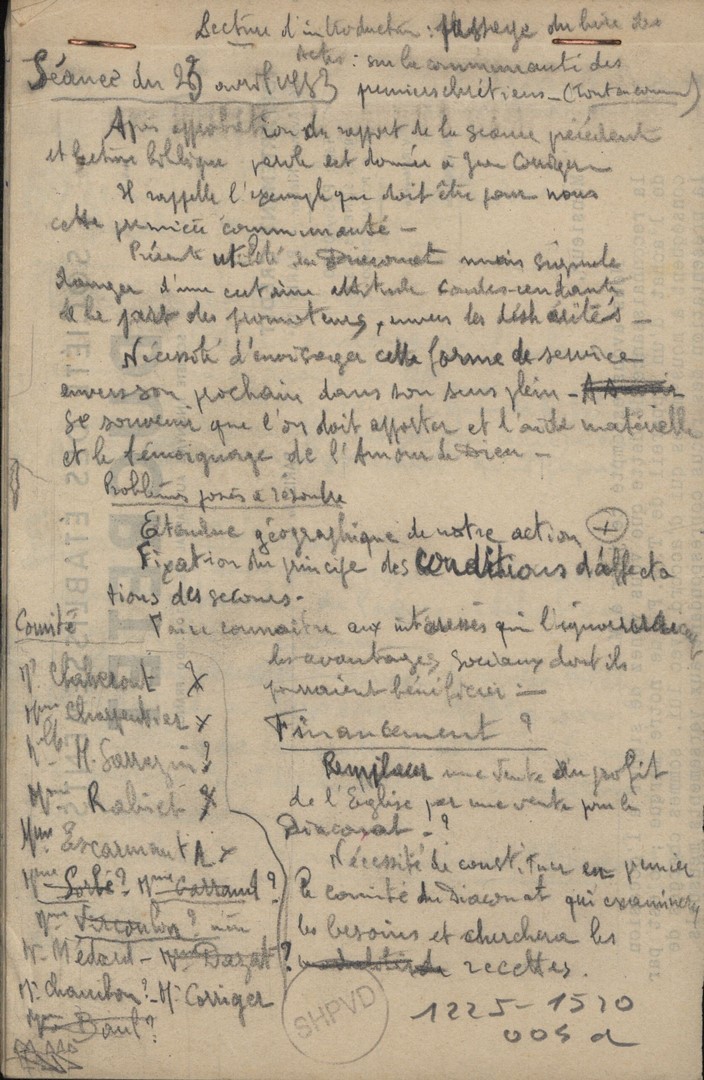 Lecture d'introduction : passage du livre des
Actes : sur la communauté des
Séance du 29 avril 1953 premiers chrétiens - (Tout en commun)
Après approbation du rapport de la séance précédente
et lecture biblique parole est donnée à Jean Corriger
Il rappelle l'exemple que doit être pour nous
cette première communauté -
Présente utilité du Diaconat mais signale
danger d'une certaine attitude condescendante
de la part des promoteurs, envers les déshérités -
Nécessité d'envisager cette forme de service
envers son prochain dans son sens plein -
se souvenir que l'on doit apporter et l'aide matérielle
et le témoignage de l'Amour de Dieu -
Problèmes posés à résoudre
Etendue géographique de notre action +
Fixation du principe des conditions d'affecta
tions des secours -
Faire connaître aux intéressés qui l'ignoreraient
les avantages sociaux dont ils
pourraient bénéficier -
Financement ?
Remplacer une vente au profit
de l'Eglise par une vente pour le
Diaconat - ?
Nécessité de constituer en premier
le comité du Diaconat qui examinera
les besoins et cherchera les
recettes.
Comité
Mr Chaberout x
Mme Charpentier x
Mlle M. Sarrazin ?
Mme Rabiet x
Mme Escarmant A. x
Mme Sorbé ? Mme Garraud ?
Mme Vircoulon ?
Mr Médard - Mme Dazat ?
Mr Chambon ? - Mr Corriger
Mme Baul ?
SHPVD
1225-1570
005 d